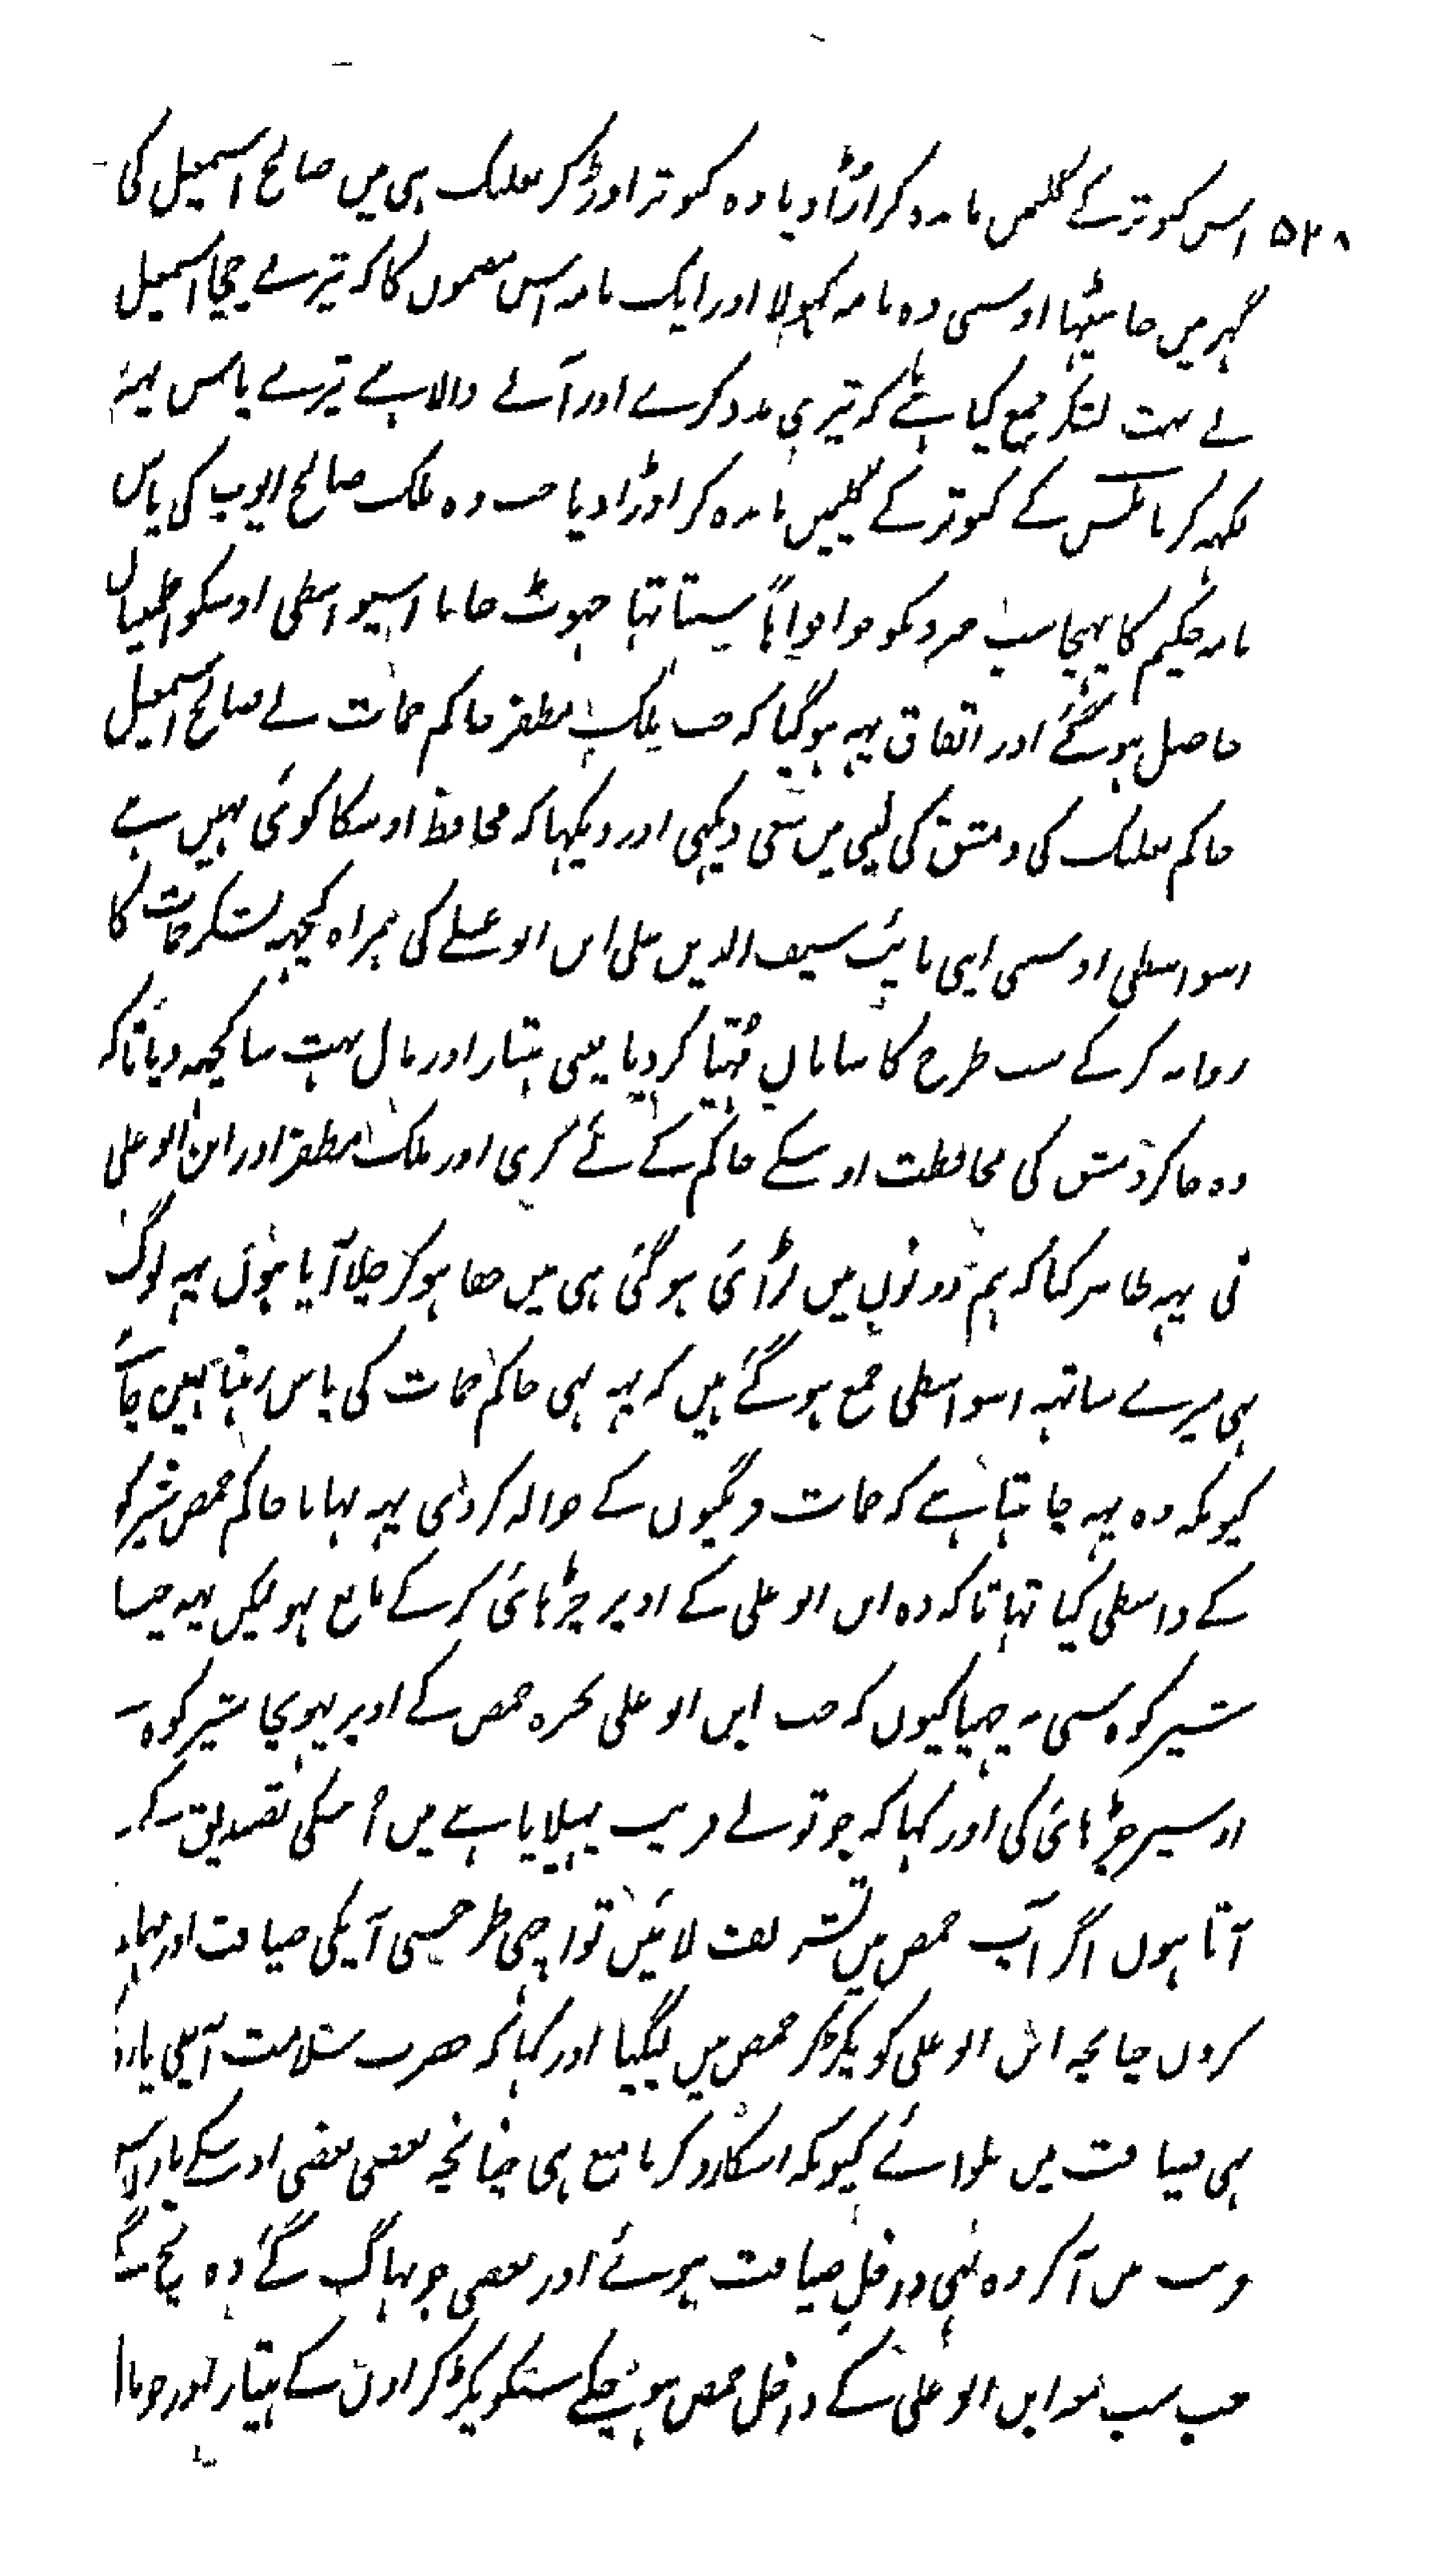 ۵۲۸ اس کبوتر کے گلیمیں باندہ کر اڑا دیا وہ کبوتر اوڑ کر بعلبک ہی میں صالح اسمعیل کی
گہر میں جا بیٹہا اوسی وہ نامہ کہولا اور ایک نامہ اس مضموں کا کہ تیرے چچا اسمعیل
نے بہت لشکر جمع کیا ہے کہ تیری مدد کرے اور آنے والا ہے تیرے پاس یہہ
لکہہ کر نابلس کے کبوتر کے گلیمیں باندہ کر اوڑا دیا جب وہ ملک صالح ایوب کی پاس
نامہ حکیم کا پہنچا سب خرد کو جو سنتا تہا جہوٹ جانا اسیواسطی اوسکو اطمینان
حاصل ہو گئے اور اتفاق یہہ ہو گیا کہ جب ملک مظفر حاکم حمات نے صالح اسمعیل
حاکم بعلبک کی دمشق کی لیی میں سعی دیکہی اور دیکہا کہ محافظ اوسکا کوئی نہیں ہے
اسواسطی اوسی اپی نائب سیف الدین علی ابن ابو علی کی ہمراہ کچہہ لشکر حمات کا
روانہ کر کے سب طرح کا سامان مُہیّا کر دیا یعنی ہتیار اور مال بہت سا کچہہ دیا تاکہ
وہ جا کر دمشق کی محافظت اوسکے حاکم کے لئے کری اور ملک مظفر اور ابن ابو علی
نی یہہ ظاہر کیا کہ ہم دونوں میں لڑائی ہو گئی ہی میں خفا ہو کر چلا آیا ہوں یہہ لوگ
ہی میرے ساتہہ اسواسطی جمع ہو گئے ہیں کہ یہہ بہی حاکم حمات کی پاس رہنا نہیں چاہتے
کیونکہ وہ یہہ چاہتا ہے کہ حمات فرنگیوں کے حوالہ کر دی یہہ بہانا حاکم حمص شیرکو
کے واسطی کیا تہا تاکہ وہ ابن ابو علی کے اوپر چڑہائی کر کے مانع ہو لیکن یہہ حیلہ
شیرکوہ سی نہ چہپا کیوں کہ جب ابن ابو علی بحرہ حمص کے اوپر پہونچا شیرکوہ نے
اوسپر چڑہائی کی اور کہا کہ جو تو نے فریب پہیلایا ہے میں اُسکی تصدیق کر
آتا ہوں اگر آپ حمص میں تشریف لائیں تو اچہی طرحسی آپکی ضیافت اور مہما
کروں چنانچہ ابن ابو علی کو پکڑ کر حمص میں لیگیا اور کہا کہ حضرت سلامت آپکی یار
ہی ضیافت میں بلوائے کیونکہ اسکا رد کرنا منع ہی چنانچہ بعضی بعضی اوسکے یار
فریب میں آ کر وہ بہی داخل ضیافت ہوئے اور بعضی جو بہاگ گئے وہ بچ گئے
جب سب مع ابن ابو علی کے داخل حمص ہو چکے سبکو پکڑ کر اون کے ہتیار اور جو